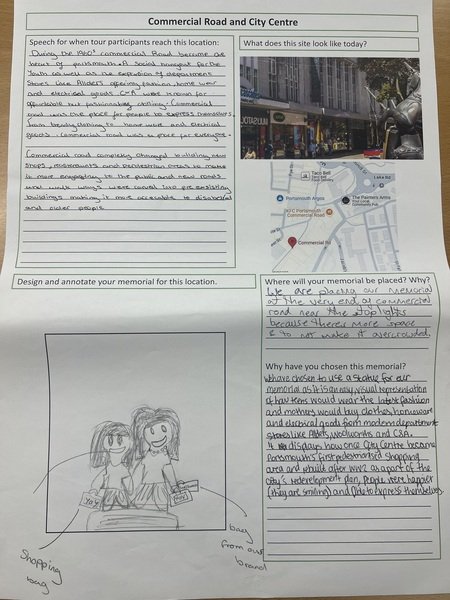 Commercial Road and City Centre
Speech for when tour participants reach this location:
During the commercial Road became the
heart of portsmouth. A social hangout for the
Youth as well as the of department
Stores Like Allders offering fashion, home wear
and electrical goods. C&A were known for
affordable but fashionable clothing. Commercial
road was the place for people to express themselves,
from clothing to home wear and electrical
goods. commercial road was a place for everyone.
Commercial road completely changed building new
shops, restaurants and pedestrian areas to make
it more engaging to the public and new roads
and walk ways were carved into pre existing
buildings making it more accessible to disabled
and older people
What does this site look like today?
Taco Bell
Portsmouth Argos
KFC Portsmouth
Commercial Road
The Painter's Arms
Commercial Rd
Design and annotate your memorial for this location.
Where will your memorial be placed? Why?
We are placing our memorial
at the very end of commercial
road near the stop lights
because theres more space
& to not make it overcrowded.
Why have you chosen this memorial?
We have chosen to use a statue for our
memorial as it is an easy visual representation
of how teens would wear the latest fashion
and mothers would buy clothes, homeware
and electrical goods from modern department
stores like Allders, woolworths and C&A.
It displays how once City Centre became
Portsmouth's first pedestrianised shopping
area and rebuilt after WW2 as a part of the
city's redevelopment plan, people were happier
(they are smiling) and able to express themselves.
Shopping
bag
bag
from our
brand